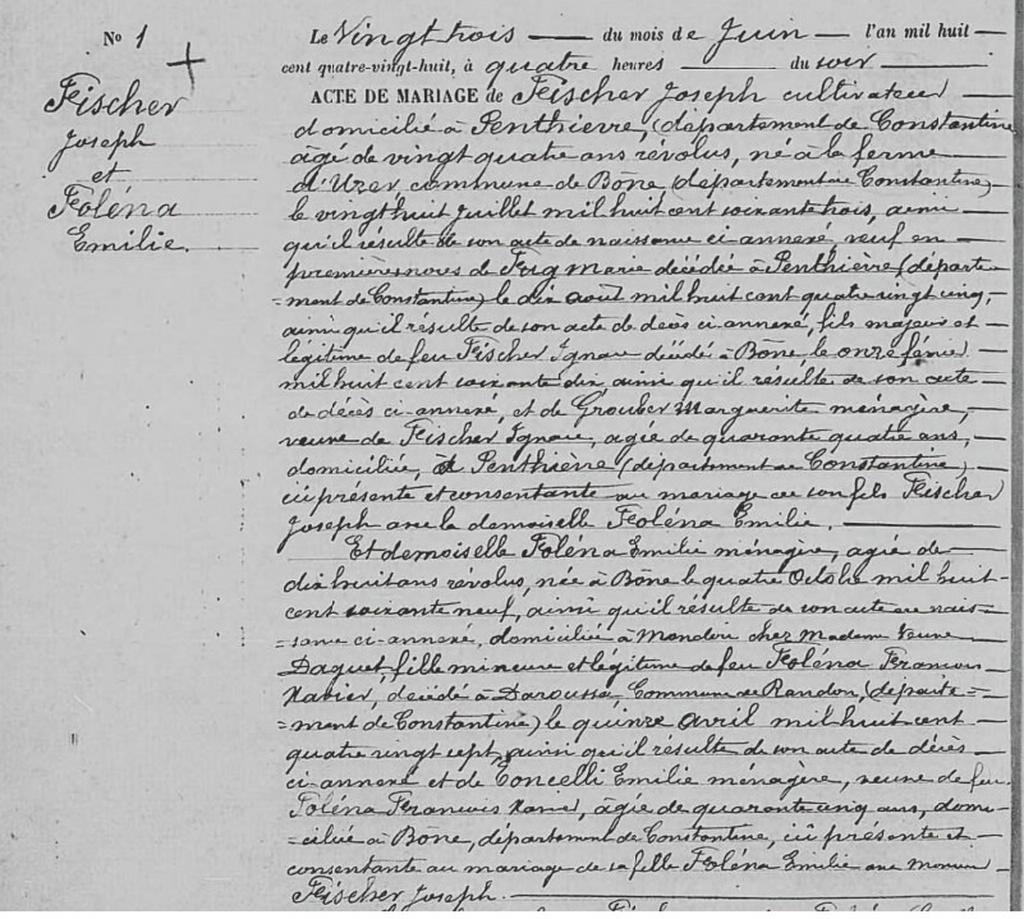 N° 1
Fischer
Joseph
et
Foléna
Emilie.
Le Vingt trois — du mois de Juin — l'an mil huit —
cent quatre-vingt-huit, à quatre heures — du soir —
ACTE DE MARIAGE de Fischer Joseph cultivateur —
domicilié à Penthièvre, (département de Constantine
âgé de vingt quatre ans révolus, né à la ferme —
d'Uzer commune de Bône (département de Constantine) —
le vingt huit Juillet mil huit cent soixante trois, ainsi —
qu'il résulte de son acte de naissance ci-annexé, veuf en —
premières noces de Fug Marie décédée à Penthièvre (départe-
=ment de Constantine) le dix août mil huit cent quatre vingt cinq, —
ainsi qu'il résulte de son acte de décès ci-annexé, fils majeur et —
légitime de feu Fischer Ignace décédé à Bône le onze février —
mil huit cent soixante dix, ainsi qu'il résulte de son acte —
de décès ci-annexé, et de Grouber Marguerite ménagère, —
veuve de Fischer Ignace, agée de quarante quatre ans, —
domiciliée, à Penthièvre (département de Constantine) —
ici présente et consentante au mariage de son fils Fischer
Joseph avec la demoiselle Foléna Emilie. —
Et demoiselle Foléna Emilie ménagère, agée de —
dix huit ans révolus, née à Bône le quatre Octobre mil huit —
cent soixante neuf, ainsi qu'il résulte de son acte de nais=
=sance ci-annexé, domiciliée à Mondovi chez Madame Veuve
Daguet, fille mineure et légitime de feu Foléna Francois
Xavier, décédé à Daroussa, Commune de Randon, (départe=
=ment de Constantine) le quinze Avril mil huit cent —
quatre vingt sept, ainsi qu'il résulte de son acte de décès —
ci-annexé et de Concelli Emilie ménagère, veuve de feu
Foléna Francois Xavier, âgée de quarante cinq ans, domi-
=ciliée à Bône, département de Constantine, ici présente et —
consentante au mariage de sa fille Foléna Emilie avec Monsieur
Fischer Joseph. —